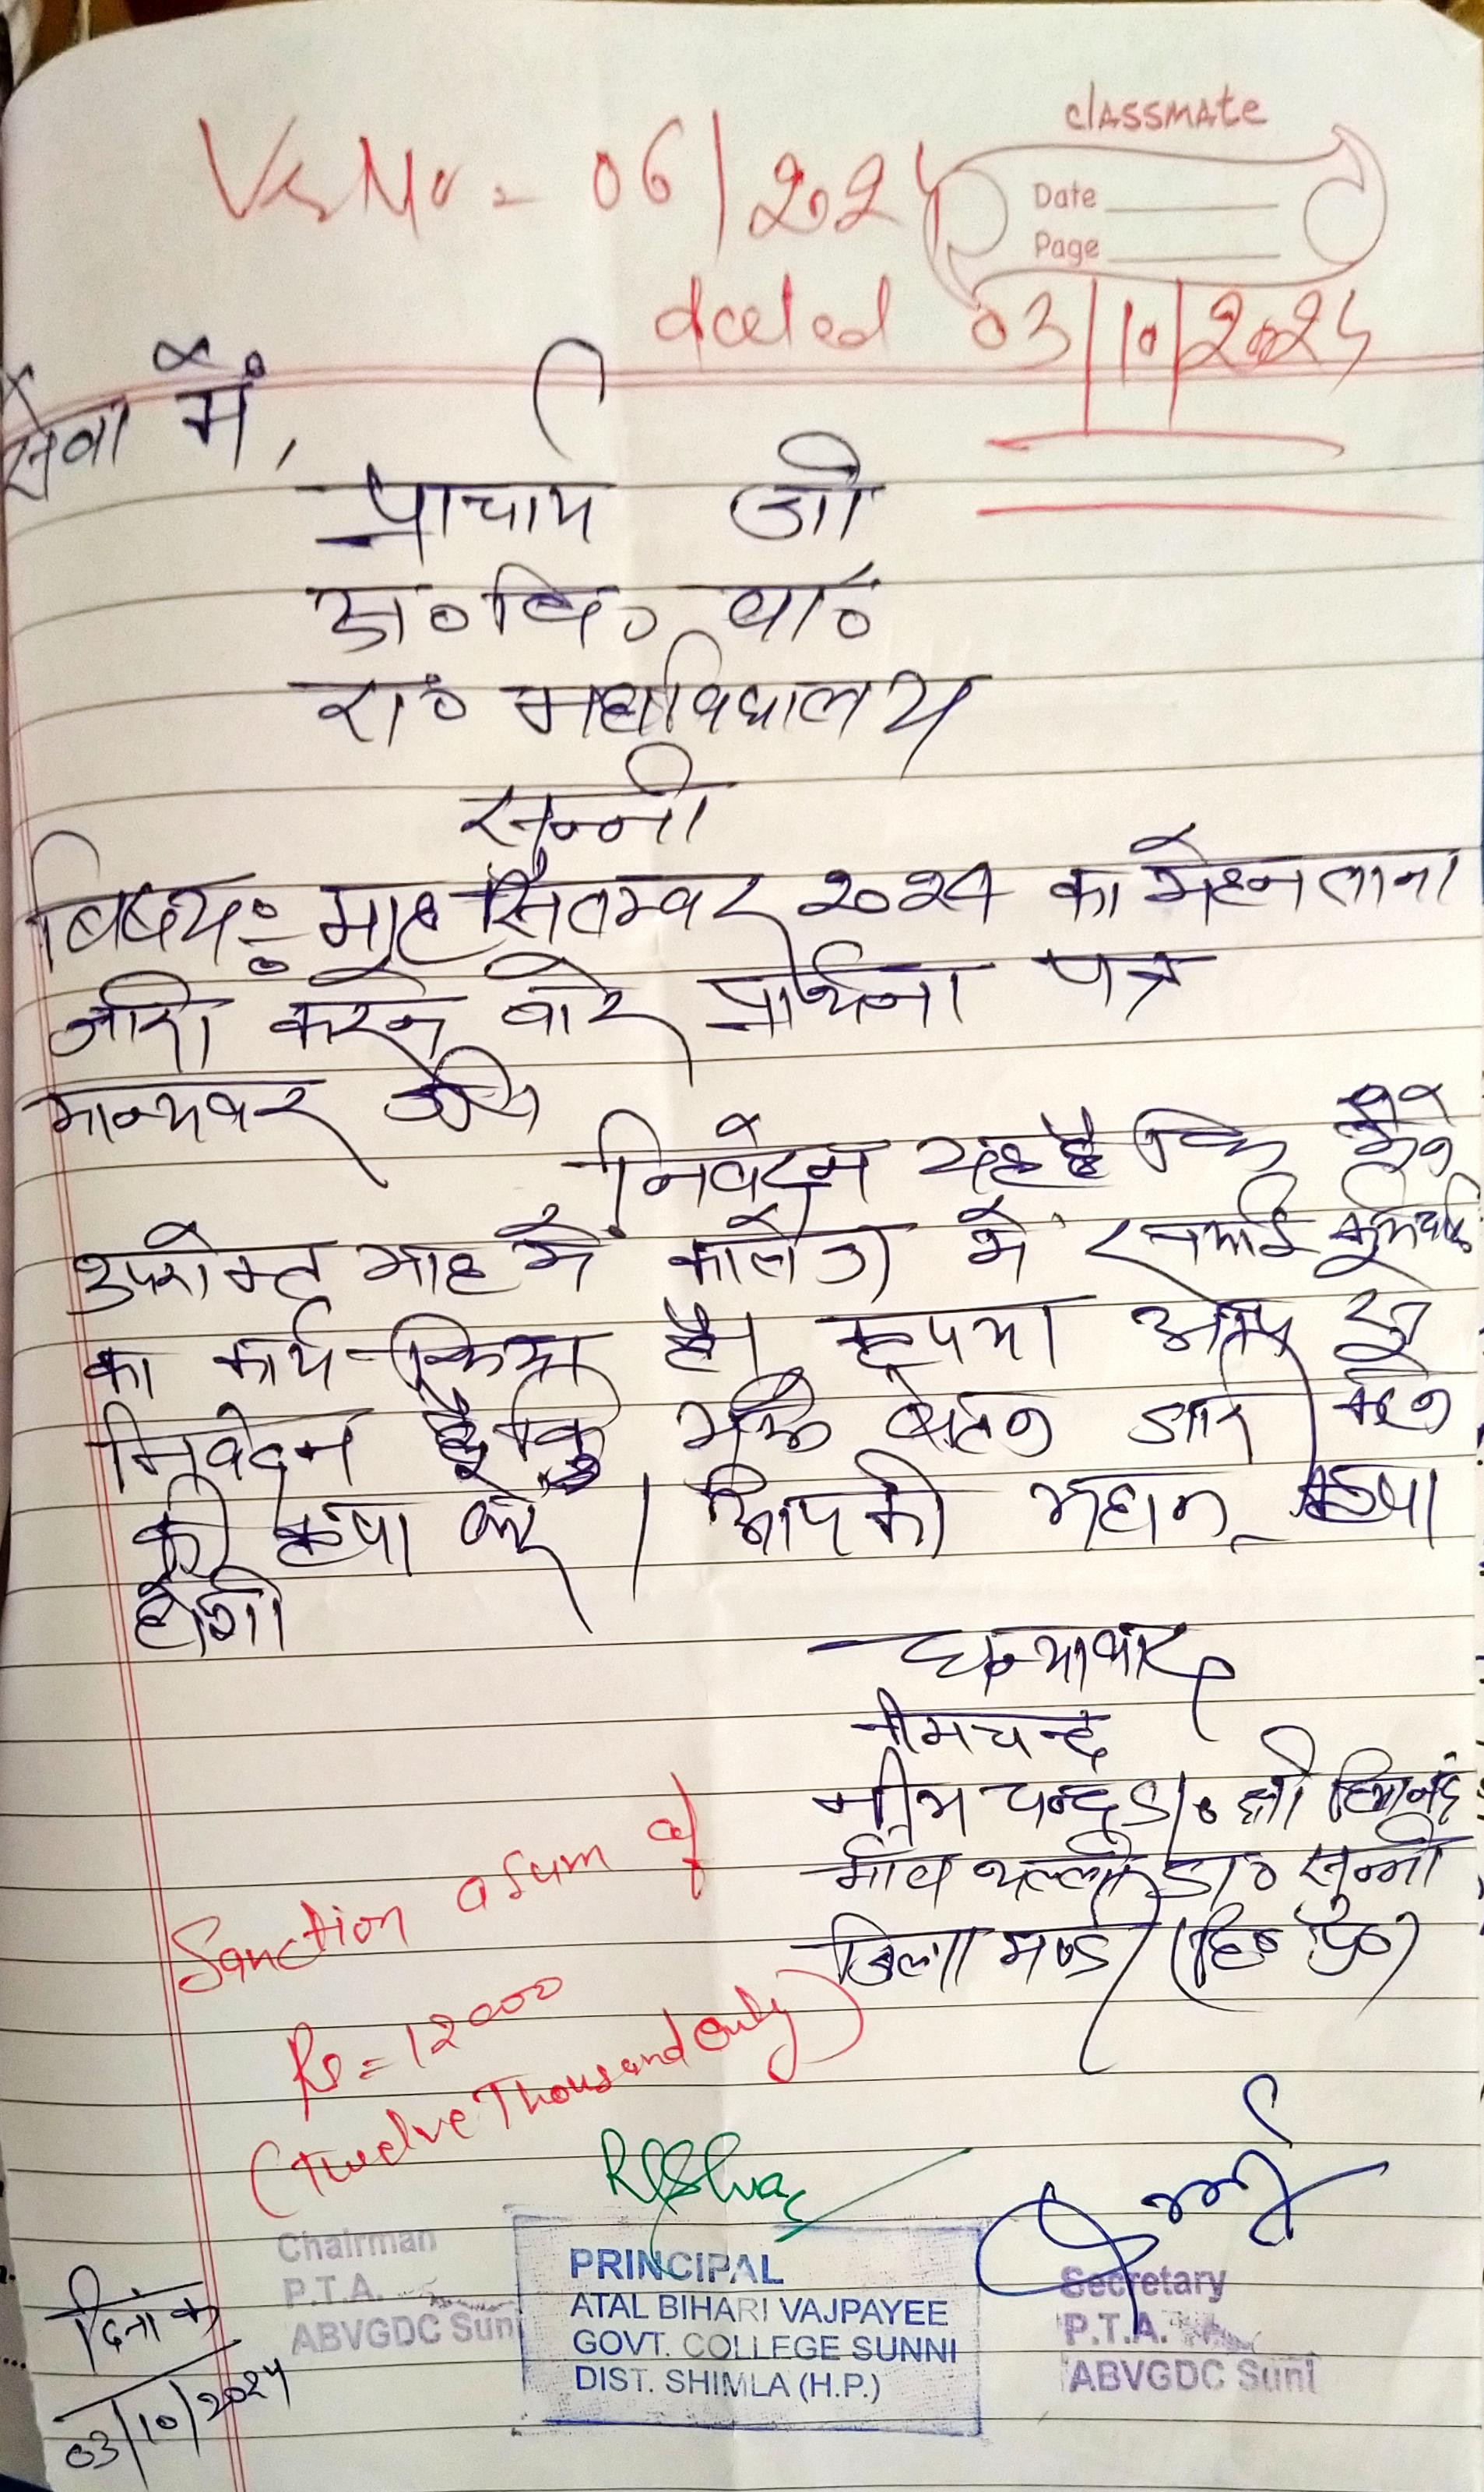 classmate
Date
Page
Vr No = 06/2024
dated 03/10/2024
सेवा में,
प्राचाय जी
अ०बि० बा०
रा० महाविद्यालय
सुन्नी
बिषय:- माह सितम्बर 2024 का मेहनताना
जारी करने बारे प्रार्थना पत्र
मान्यवर जी
निवेदन यह है कि मैने
उपरोक्त माह में कालेज में सफाई
का कार्य किया है। कृपया आप से
निवेदन है कि मुझे वेतन जारी करने
की कृपा करें। आपकी महान कृपा
होगी
धन्यावाद
नीमचन्द
नीम चन्द S/० श्री
गांव डा० सुन्नी
जिला मण्डी (हि० प्र०)
Sanction a sum of
Rs = 12000
(Twelve Thousand Only)
Chairman
P.T.A.
ABVGDC Suni
PRINCIPAL
ATAL BIHARI VAJPAYEE
GOVT. COLLEGE SUNNI
DIST. SHIMLA (H.P.)
Secretary
P.T.A.
ABVGDC Suni
दिनांक
03/10/2024